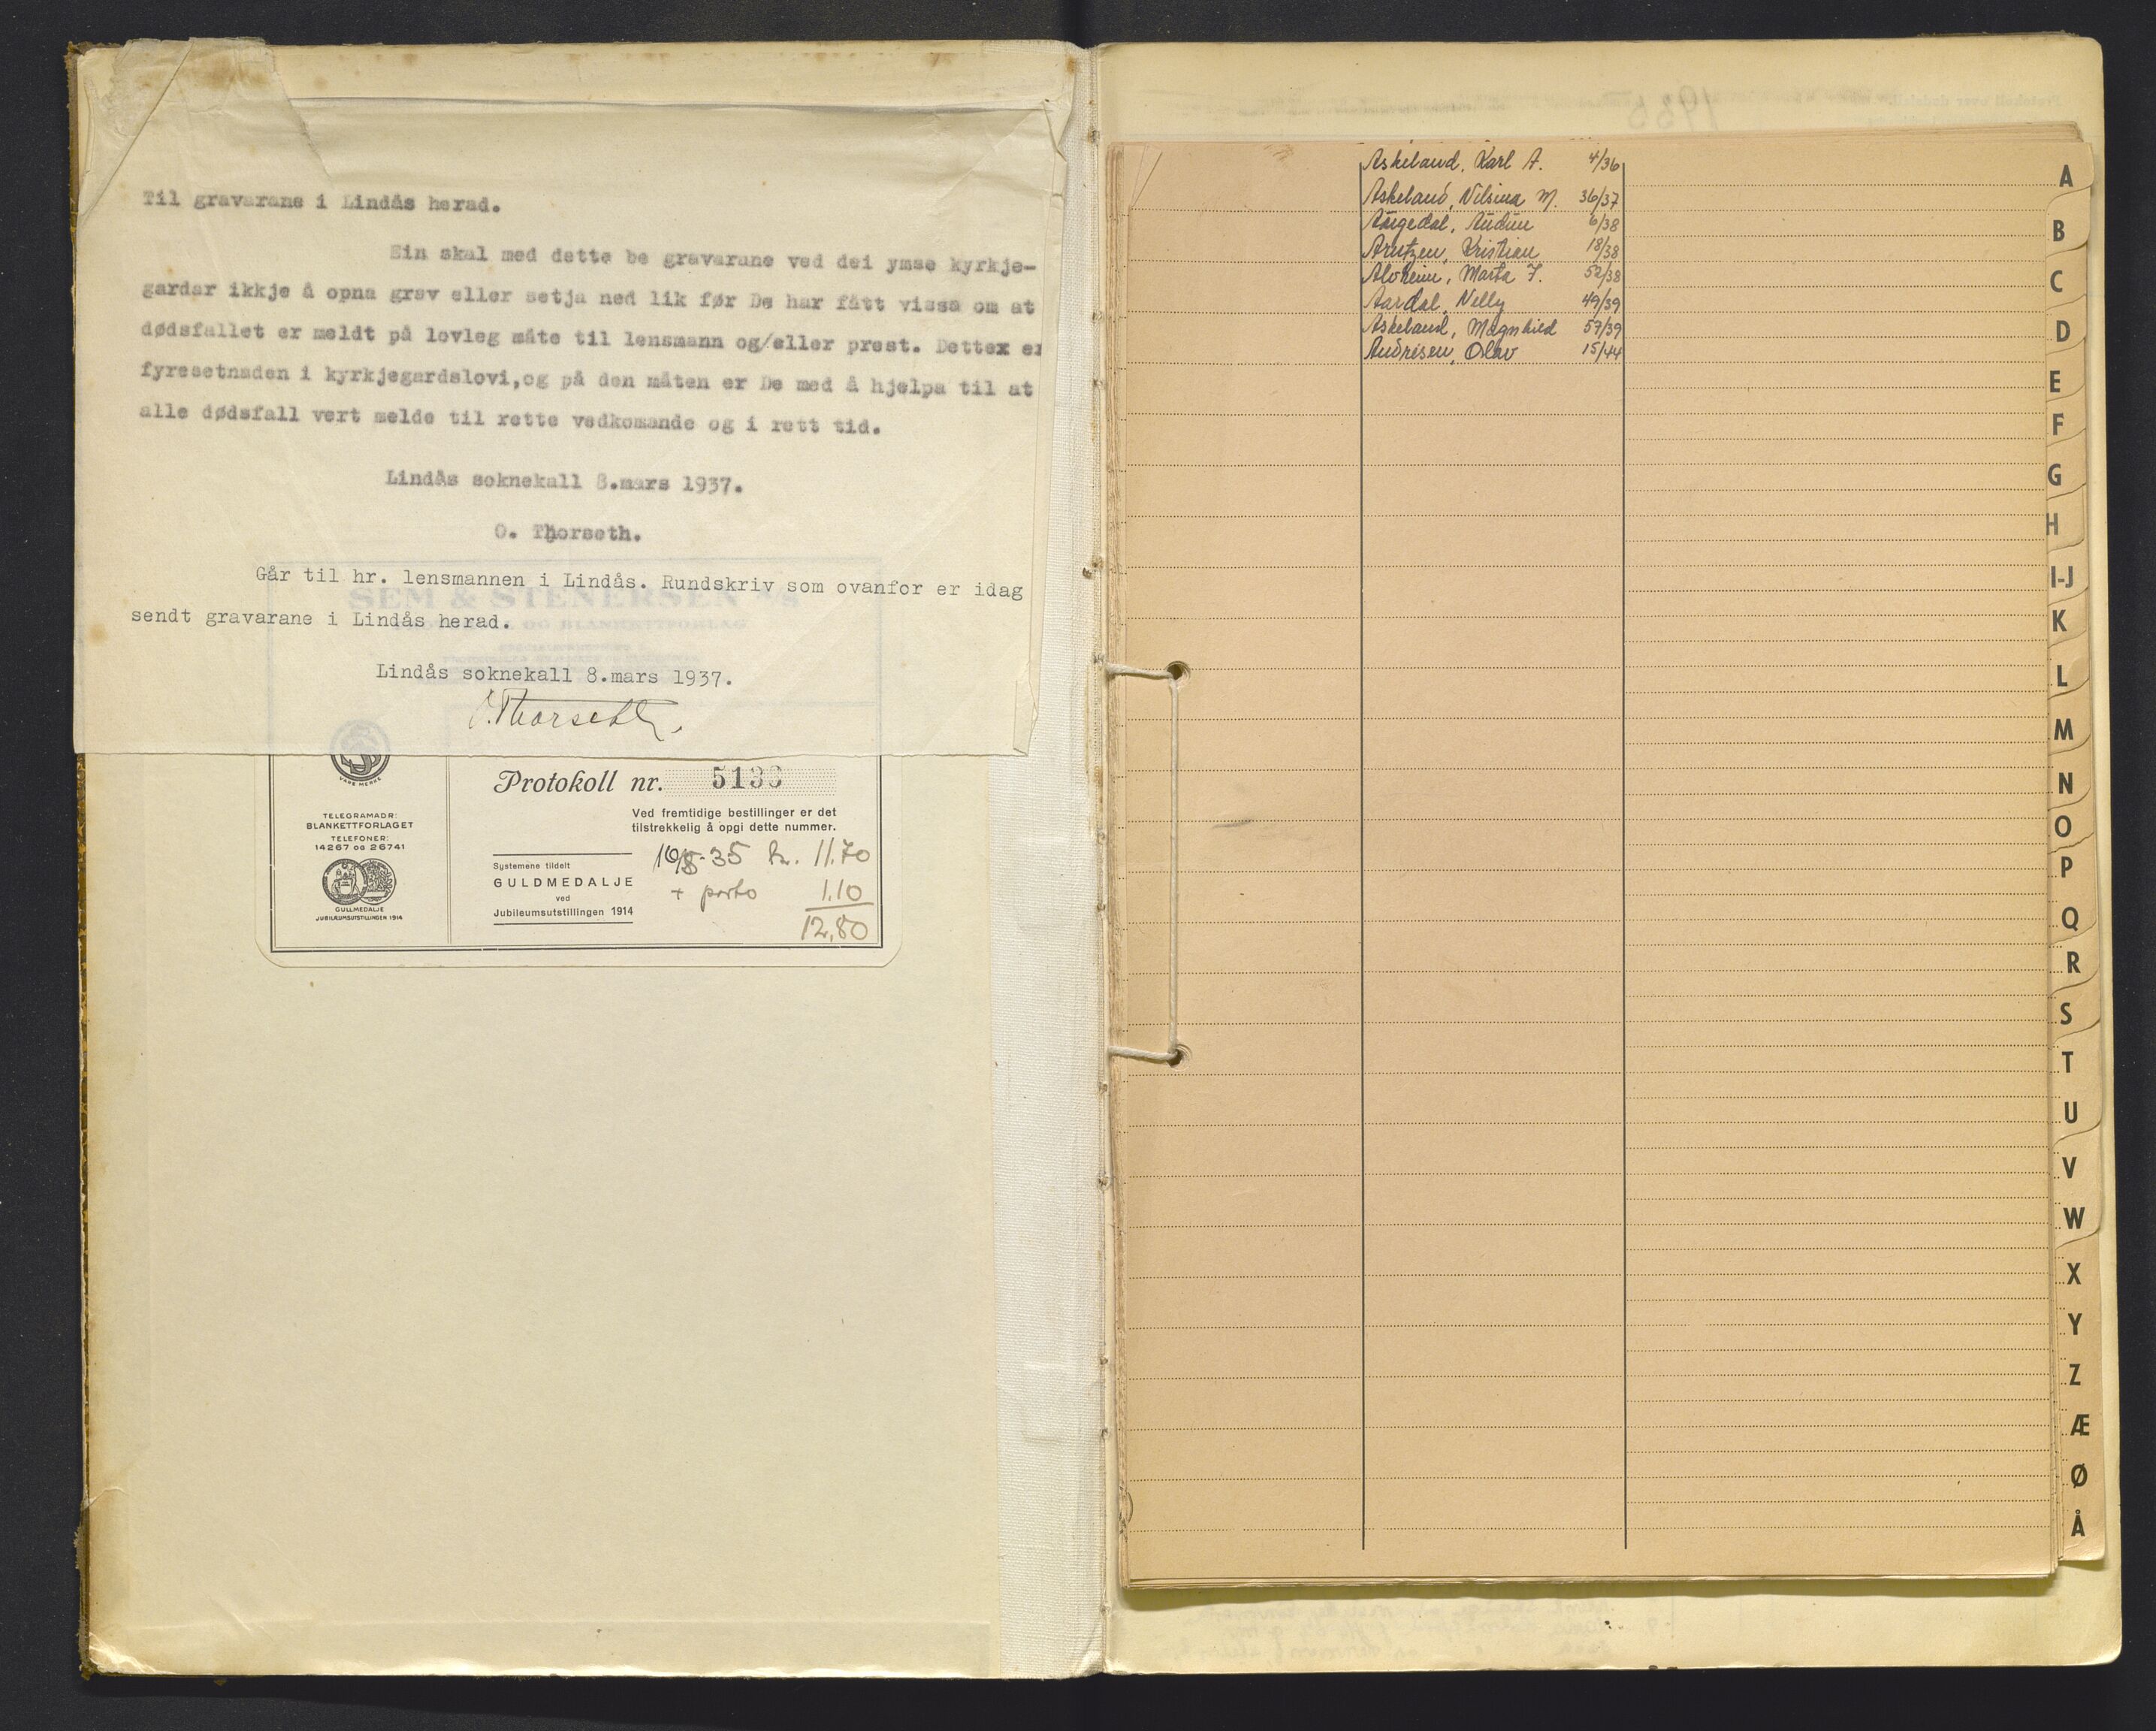 Til gravarane i Lindås herad.
Ein skal med dette be gravarane ved dei ymse kyrkje-
gardar ikkje å opna grav eller setja ned lik før De har fått vissa om at
dødsfallet er meldt på lovleg måte til lensmann og/eller prest. Dettex er
fyresetnaden i kyrkjegardslovi,og på den måten er De med å hjelpa til at
alle dødsfall vert melde til rette vedkomande og i rett tid.
Lindås soknekall 8.mars 1937.
O. Thorseth.
Går til hr. lensmannen i Lindås. Rundskriv som ovanfor er idag
sendt gravarane i Lindås herad.
SEM & STENERSEN A/S
OG BLANKETTFORLAG
Lindås soknekall 8.mars 1937.
O. Thorseth.
VARE MERKE
TELEGRAMADR:
BLANKETTFORLAGET
TELEFONER:
14267 OG 26741
GULLMEDALJE
JUBILEUMSUTSTILLINGEN 1914
Protokoll nr. 5133
Ved fremtidige bestillinger er det
tilstrekkelig å opgi dette nummer.
Systemene tildelt
GULDMEDALJE
ved
Jubileumsutstillingen 1914
16/5-35 kr. 11.70
+ porto 1.10
12,80
1935
Askeland, Karl A. 4/36
Askeland, Nilsina M. 36/37
Aaugedal, Audun 6/38
Arntzen, Kristian 18/38
Alvheim, Marta J. 52/38
Aardal, Nelly 49/39
Askeland, Magnhild 57/39
Andrisen, Olav 15/44
A
B
C
D
E
F
G
H
I-J
K
L
M
N
O
P
Q
R
S
T
U
V
W
X
Y
Z
Æ
Ø
Å